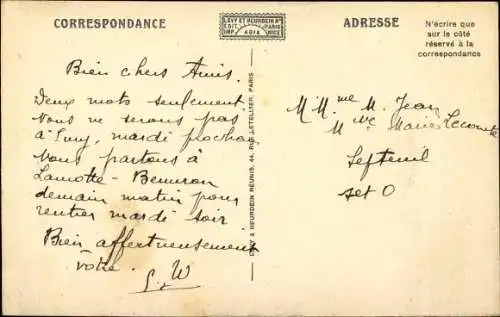 CORRESPONDANCE
LEVY ET NEURDEIN RÉUNIS
ADRESSE
N'écrire que
sur le côté
réservé à la
correspondance
Bien chers Amis.
Deux mots seulement
Nous ne serons pas
à Evry, mardi prochain
Nous partons à
Lamotte-Beuvron
demain matin pour
rentrer mardi soir
Bien affectueusement
vôtre.
G. W
LEVY & NEURDEIN RÉUNIS, 44, RUE LETELLIER, PARIS
M Mme M. Jean
Marie Lecomte
Septeuil
Set O